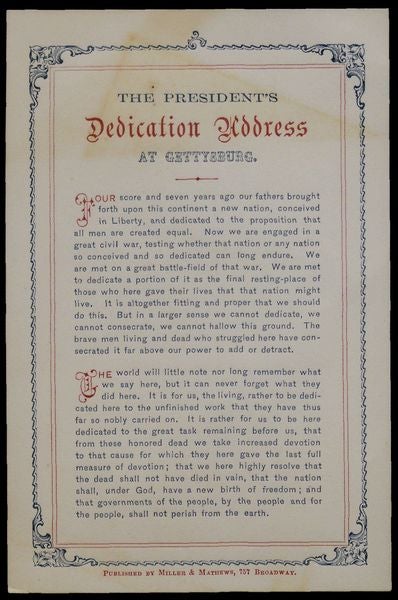 THE PRESIDENT'S
Dedication Address
AT GETTYSBURG.
FOUR score and seven years ago our fathers brought
forth upon this continent a new nation, conceived
in Liberty, and dedicated to the proposition that
all men are created equal. Now we are engaged in a
great civil war, testing whether that nation or any nation
so conceived and so dedicated can long endure. We
are met on a great battle-field of that war. We are met
to dedicate a portion of it as the final resting-place of
those who here gave their lives that that nation might
live. It is altogether fitting and proper that we should
do this. But in a larger sense we cannot dedicate, we
cannot consecrate, we cannot hallow this ground. The
brave men living and dead who struggled here have con-
secrated it far above our power to add or detract.
THE world will little note nor long remember what
we say here, but it can never forget what they
did here. It is for us, the living, rather to be dedi-
cated here to the unfinished work that they have thus
far so nobly carried on. It is rather for us to be here
dedicated to the great task remaining before us, that
from these honored dead we take increased devotion
to that cause for which they here gave the last full
measure of devotion; that we here highly resolve that
the dead shall not have died in vain, that the nation
shall, under God, have a new birth of freedom; and
that governments of the people, by the people and for
the people, shall not perish from the earth.
PUBLISHED BY MILLER & MATHEWS, 757 BROADWAY.